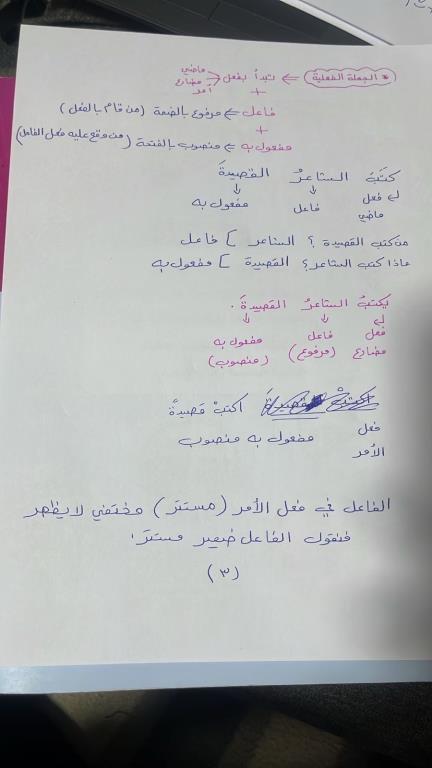 * الجملة الفعلية ⇐ تبدأ بفعل ماضي مضارع أمر
+
فاعل ⇐ مرفوع بالضمة (من قام بالفعل)
+
مفعول به ⇐ منصوب بالفتحة (من وقع عليه فعل الفاعل)
كتَبَ الشاعرُ القصيدةَ
فعل ماضي فاعل مفعول به
من كتب القصيدة ؟ الشاعر [ فاعل
ماذا كتب الشاعر ؟ القصيدة [ مفعول به
يكتبُ الشاعرُ القصيدةَ .
فعل فاعل مفعول به
مضارع (مرفوع) (منصوب)
اكتبْ قصيدةً
فعل مفعول به منصوب
الأمر
الفاعل في فعل الأمر (مستتر) مختفي لا يظهر
فنقول الفاعل ضمير مستتر
(٣)